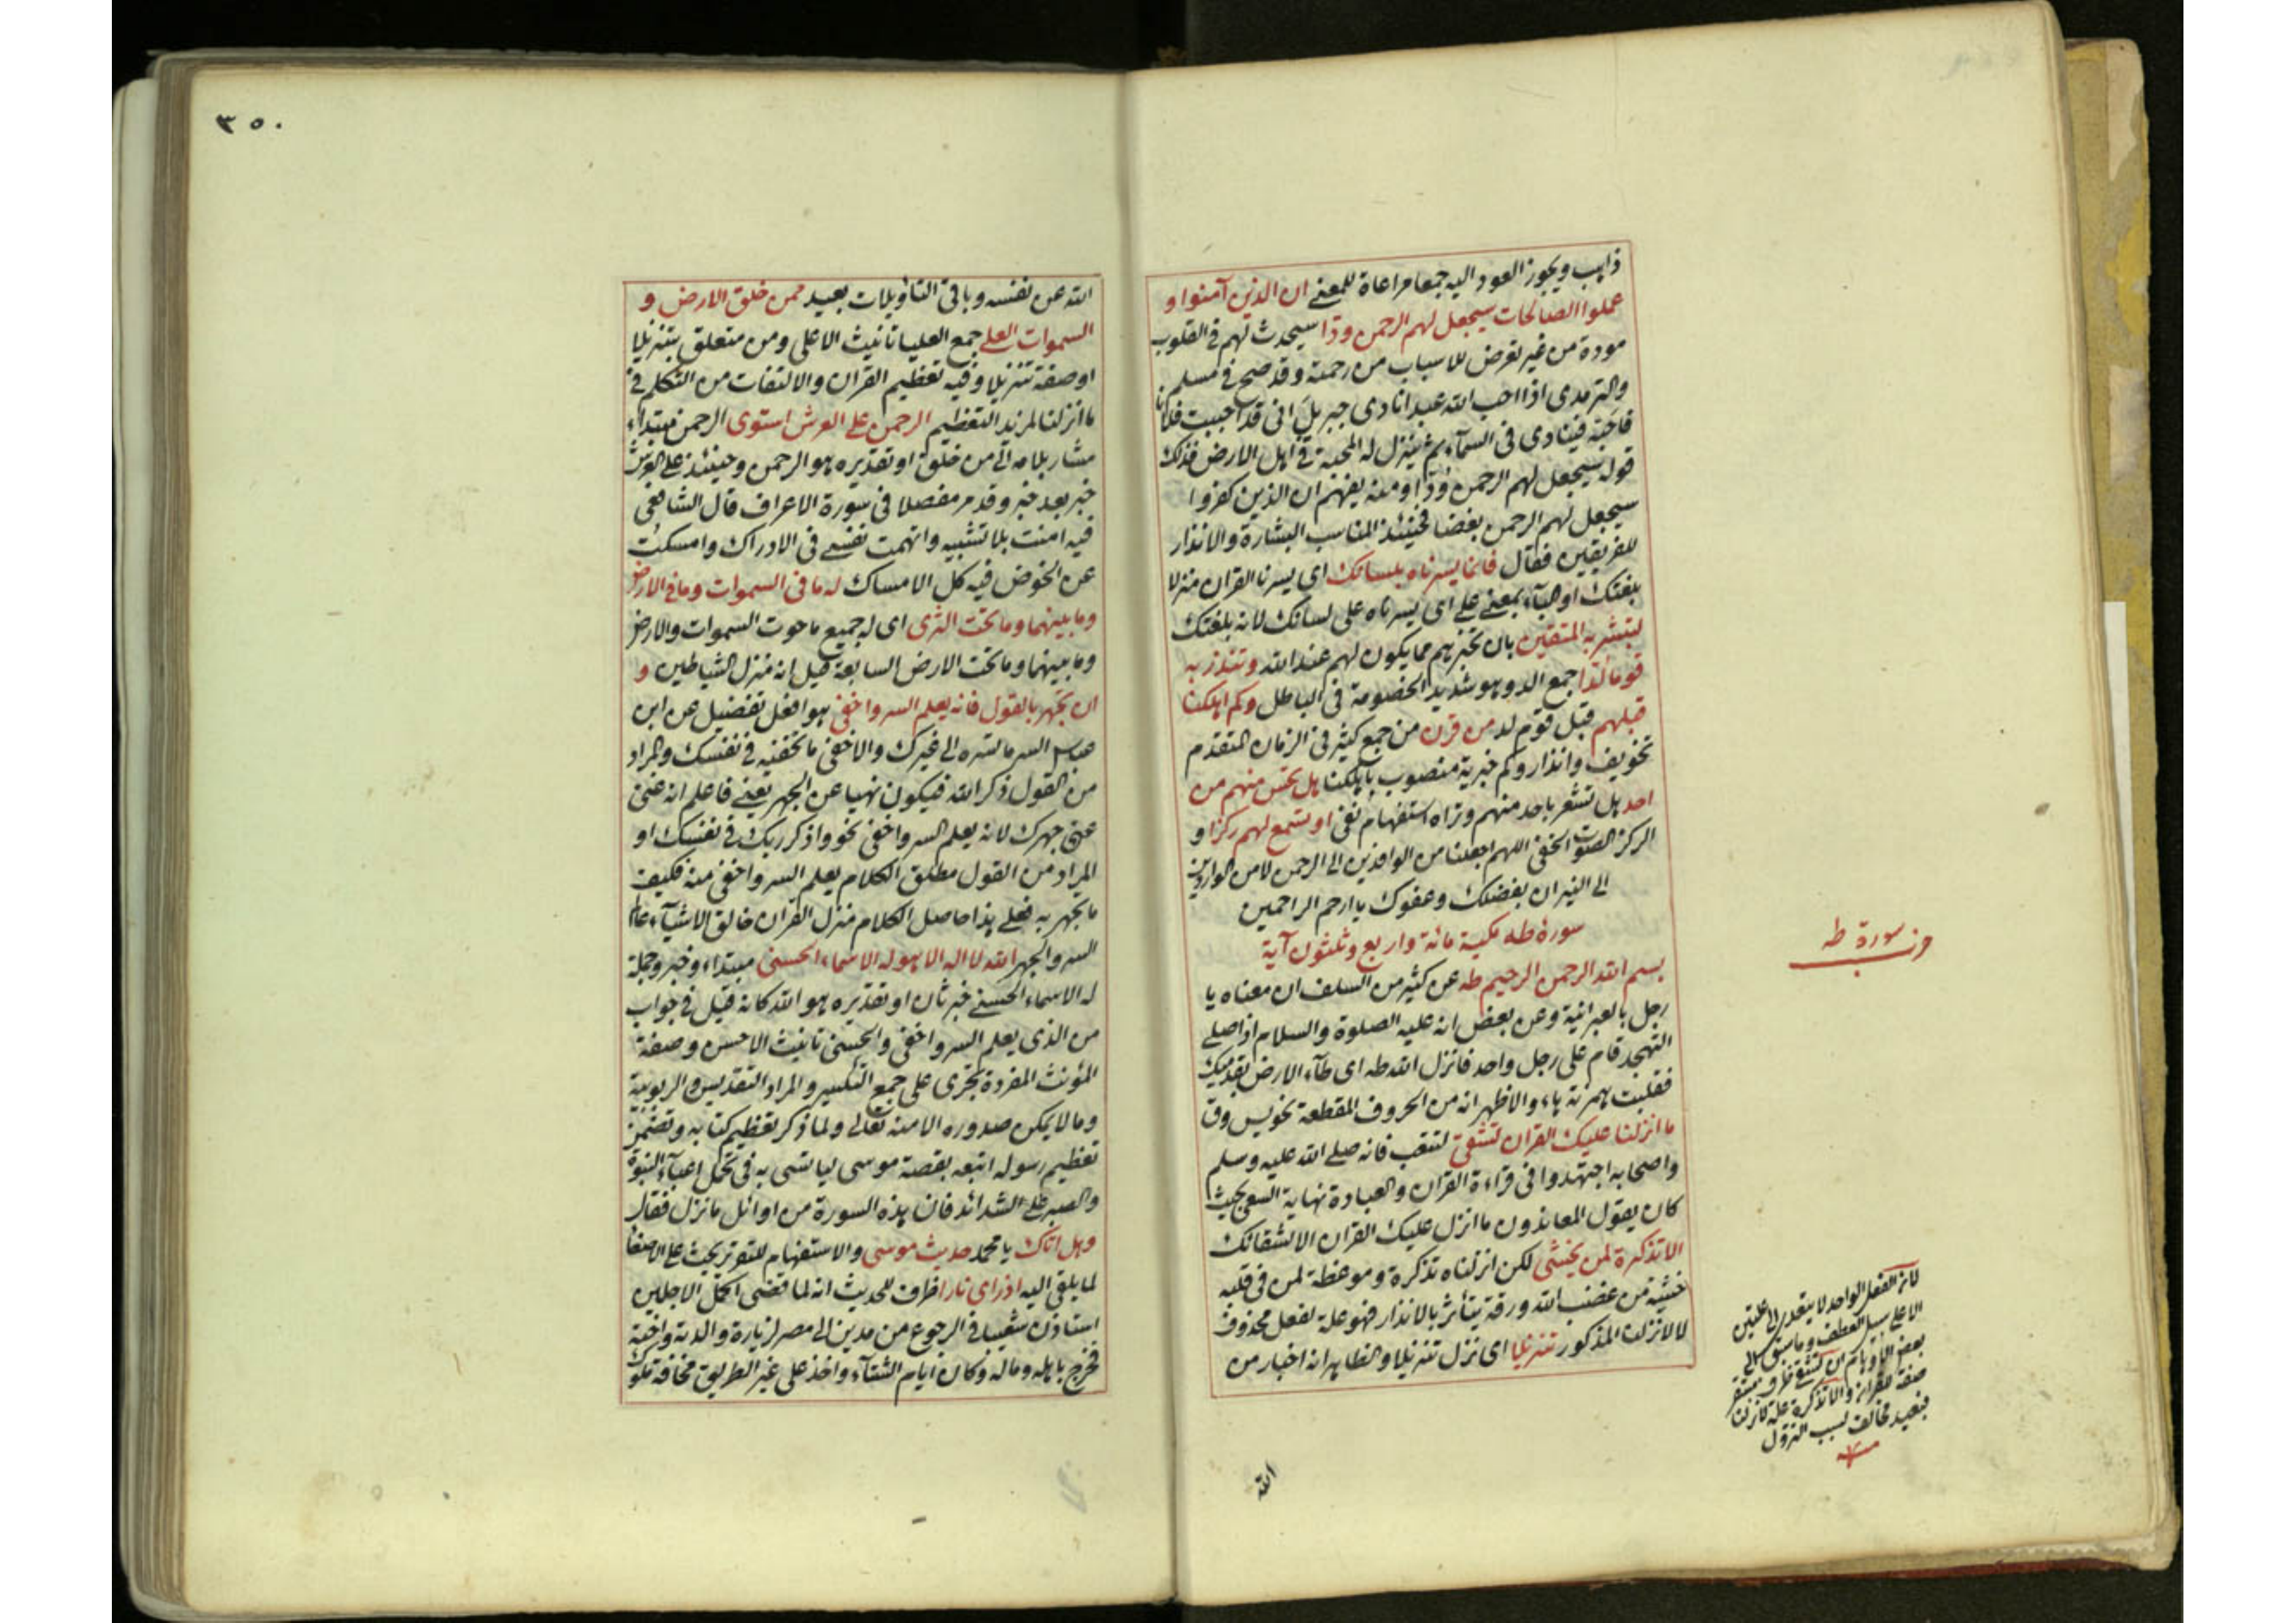 ذاهب ويجوز العود اليه جمعا مراعاة للمعنى ان الذين آمنوا و
عملوا الصالحات سيجعل لهم الرحمن ودا سيحدث لهم في القلوب
مودة من غير تعرض للاسباب من رحمته وقد صح في مسلم
والترمذى اذا احب الله عبدا نادى جبريل انى قد احببت فلانا
فاحبه فينادى في السمآء ثم ينزل له المحبة في اهل الارض فذلك
قوله سيجعل لهم الرحمن ودا ومنه يفهم ان الذين كفروا
سيجعل لهم الرحمن بغضا فحينئذ المناسب البشارة والانذار
للفريقين فقال فانما يسرناه بلسانك اى يسرنا القران منزلا
بلغتك او البآء بمعنى على اى يسرناه على لسانك لانه بلغتك
لتبشر به المتقين بان تخبرهم مما يكون لهم عند الله وتنذر به
قوما لدا جمع الد وهو شديد الخصومة في الباطل وكم اهلكنا
قبلهم قبل قوم لد من قرن من جمع كثير في الزمان المتقدم
تخويف وانذار وكم خبرية منصوب باهلكنا هل تحس منهم من
احد هل تشعر باحد منهم وتراه استفهام نفى او تسمع لهم ركزا و
الركز الصوت الخفى اللهم اجعلنا من الوافدين الى الرحمن لا من الواردين
الى النيران بفضلك وعفوك يا ارحم الراحمين
سورة طه مكية مائة واربع وثلثون آية
بسم الله الرحمن الرحيم طه عن كثير من السلف ان معناه يا
رجل بالعبرانية وعن بعض انه عليه الصلوة والسلام اذا صلى
التهجد قام على رجل واحد فانزل الله طه اى طآء الارض بقدميك
فقلبت همزته هاء والاظهر انه من الحروف المقطعة نحو يس وق
ما انزلنا عليك القران لتشقى لتتعب فانه صلى الله عليه وسلم
واصحابه اجتهدوا في قراءة القران والعبادة نهاية السعى بحيث
كان يقول المعاندون ما انزل عليك القران الا لشقائك
الا تذكرة لمن يخشى لكن انزلناه تذكرة وموعظة لمن في قلبه
خشية من غضب الله ورقة يتأثر بالانذار فهو علة لفعل محذوف
لا لانزلنا المذكور تنزيلا اى نزل تنزيلا والظاهر انه اخبار من
الله
سورة طه
لان الفعل الواحد لا يتعدى الى علتين
الا على سبيل العطف وما سبق الى
بعض الاوهام ان لتشقى ظرف مستقر
صفة للقران والا تذكرة علة لانزلنا
فبعيد مخالف لسبب النزول
٣٥٠
الله عن نفسه وباقى التاويلات بعيد ممن خلق الارض و
السموات العلى جمع العليا تانيث الاعلى ومن متعلق بتنزيلا
او صفة تنزيلا وفيه تعظيم القران والالتفات من التكلم في
ما انزلنا لمزيد التعظيم الرحمن على العرش استوى الرحمن مبتداء
مشار بلامه الى من خلق او تقديره هو الرحمن وحينئذ على العرش
خبر بعد خبر وقد مر مفصلا في سورة الاعراف قال الشافعى
فيه امنت بلا تشبيه واتهمت نفسى في الادراك وامسكت
عن الخوض فيه كل الامساك له ما فى السموات وما فى الارض
وما بينهما وما تحت الثرى اى له جميع ما حوت السموات والارض
وما بينهما وما تحت الارض السابعة قيل انه منزل الشياطين و
ان تجهر بالقول فانه يعلم السر واخفى هو افعل تفضيل عن ابن
عباس السر ما تسره الى غيرك والاخفى ما تخفيه في نفسك والمراد
من القول ذكر الله فيكون نهيا عن الجهر يعنى فاعلم انه غنى
عن جهرك لانه يعلم السر واخفى نحو واذكر ربك في نفسك او
المراد من القول مطلق الكلام يعلم السر واخفى منه فكيف
ما تجهر به فعلى هذا حاصل الكلام منزل القران خالق الاشيآء عالم
السر والجهر الله لا اله الا هو له الاسماء الحسنى مبتداء وخبر وجملة
له الاسماء الحسنى خبر ثان او تقديره هو الله كانه قيل في جواب
من الذى يعلم السر واخفى والحسنى تانيث الاحسن وصفة
المؤنث المفردة تجرى على جمع التكسير والمراد التقديس والربوبية
وما لا يمكن صدوره الا منه تعالى ولما ذكر تعظيم كتابه وتضمن
تعظيم رسوله اتبعه بقصة موسى ليأتسى به في تحمل اعبآء النبوة
والصبر على الشدائد فان هذه السورة من اوائل ما نزل فقال
وهل اتاك يا محمد حديث موسى والاستفهام للتقرير يحث على الاصغا
لما يلقى اليه اذ راى نارا ظرف للحديث انه لما قضى اكمل الاجلين
استاذن شعيبا في الرجوع من مدين الى مصر لزيارة والدته واخته
فخرج باهله وماله وكان ايام الشتآء واخذ على غير الطريق مخافة ملوك